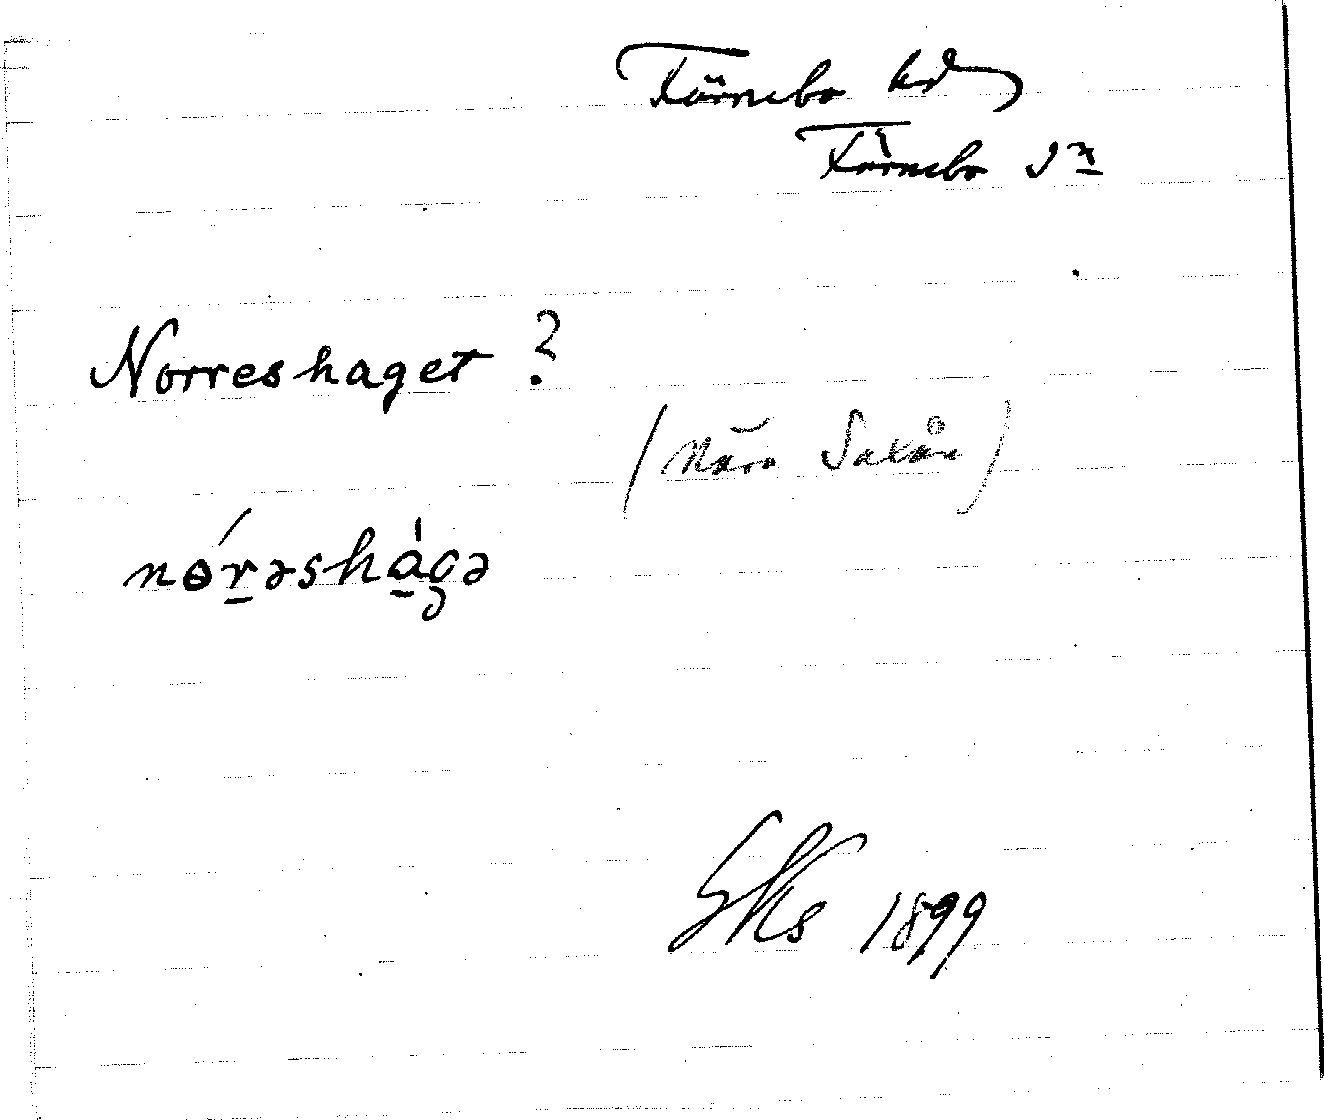 Färnebo hd
Färnebo sn
Norreshaget ?
(Nära Saxån)
nɵ́rəshágə
SKs 1899